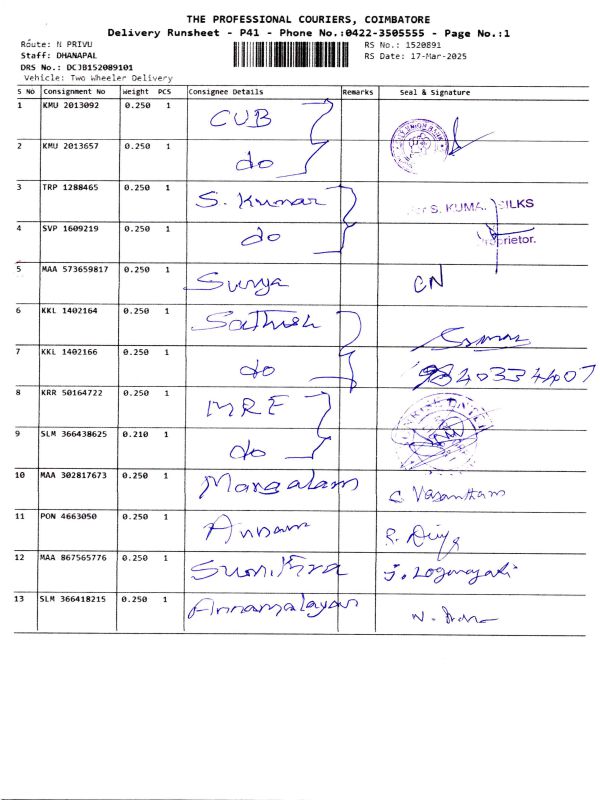 THE PROFESSIONAL COURIERS, COIMBATORE
Delivery Runsheet - P41 - Phone No.:0422-3505555 - Page No.:1
Route: N PRIVU RS No.: 1520891
Staff: DHANAPAL RS Date: 17-Mar-2025
DRS No.: DCJB152089101
Vehicle: Two Wheeler Delivery
S No Consignment No Weight PCS Consignee Details Remarks Seal & Signature
1 KMU 2013092 0.250 1 CUB
2 KMU 2013657 0.250 1 do
3 TRP 1288465 0.250 1 S. Kumar S. KUMA SILKS
4 SVP 1609219 0.250 1 do prietor.
5 MAA 573659817 0.250 1 Surya CN
6 KKL 1402164 0.250 1 Sathish
7 KKL 1402166 0.250 1 do 9840334407
8 KRR 50164722 0.250 1 MRF
9 SLM 366438625 0.210 1 do
10 MAA 302817673 0.250 1 Mangalam C. Vasantham
11 PON 4663050 0.250 1 Annam R. Divya
12 MAA 867565776 0.250 1 Sumithra J. Loganayaki
13 SLM 366418215 0.250 1 Annamalayan